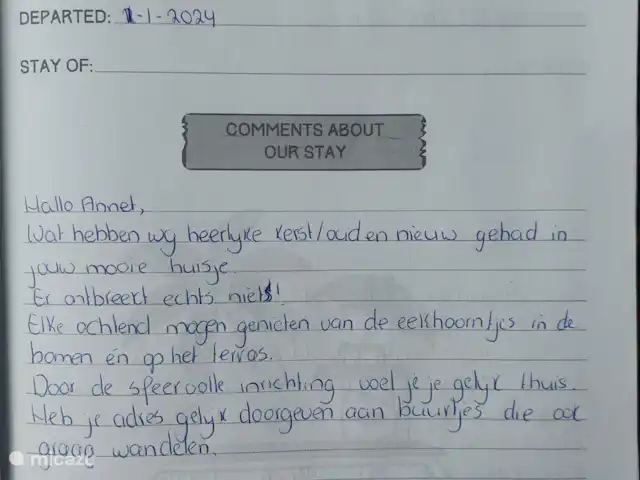 DEPARTED: 1-1-2024
STAY OF:
COMMENTS ABOUT
OUR STAY
Hallo Annet,
Wat hebben wy heerlyke kerst/oud en nieuw gehad in
jouw mooie huisje.
Er ontbreekt echts niets!
Elke ochtend mogen genieten van de eekhoorntjes in de
bomen én op het terras.
Door de sfeervolle inrichting voel je je gelyk thuis.
Heb je adres gelyk doorgeven aan buurtjes die ook
graag wandelen.
micazu